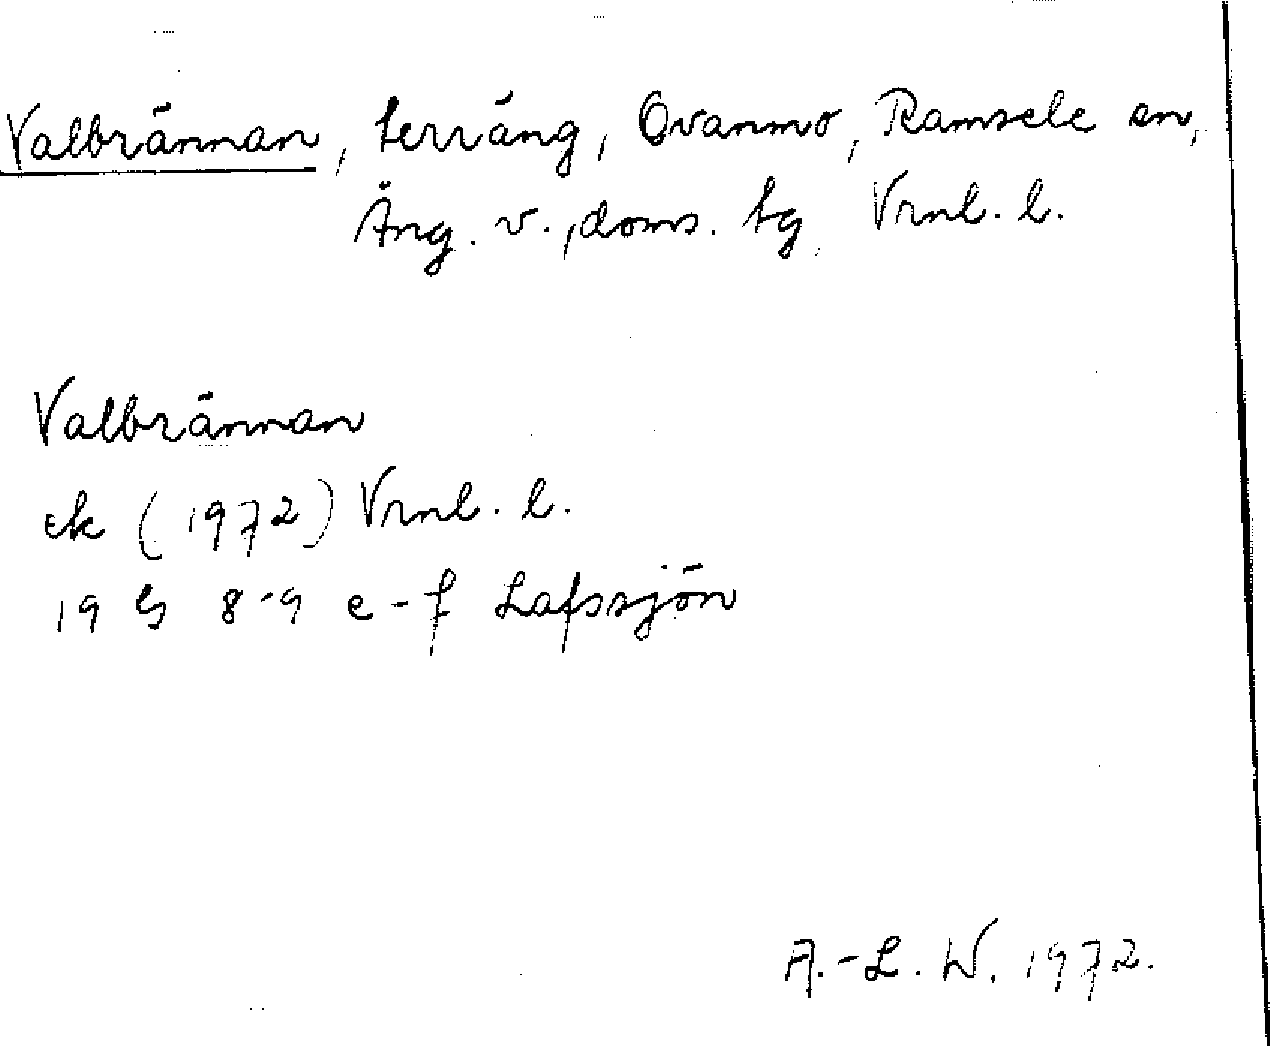 Valbrännan, terräng, Ovanmo, Ramsele sn,
Äng. v., doms. tg, Vrnl. l.
Valbrännan
ek (1972) Vrnl. l.
19 G 8-9 e-f Lafssjön
A.-L. W. 1972.